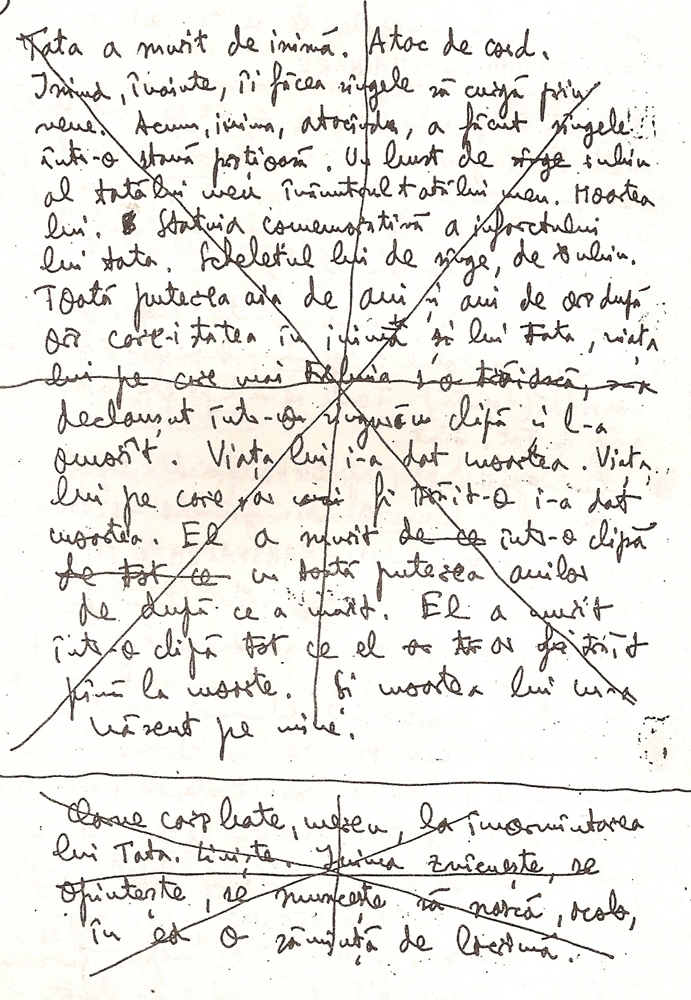 Tata a murit de inimă. Atac de cord.
Inima, înainte, îi făcea sîngele să curgă prin
vene. Acum, inima, atacînda, a făcut sîngele
într-o stană pietroasă. Un bust de sînge iubin
al tatălui meu înăuntrul tatălui meu. Moartea
lui. Statuia comemorativă a infarctului
lui tata. Scheletul lui de sînge, de iubin.
Toată puterea aia de ani și ani de ani după
ani care-i stătea în inimă și lui tata, viața
lui pe care mai trebuia s-o trăiască, s-a
declanșat într-o singură clipă și l-a
omorît. Viața lui i-a dat moartea. Viața
lui pe care ar mai fi trăit-o i-a dat
moartea. El a murit de ce într-o clipă
de tot ce cu toată puterea anilor
de după ce a murit. El a murit
într-o clipă tot ce el ar fi trăit
pînă la moarte. Și moartea lui m-a
născut pe mine.
Carne care bate, mereu, la înmormîntarea
lui Tata. Liniște. Inima zvîcnește, se
opintește, se muncește să nască, acolo,
în ea o sămînță de lacrimă.